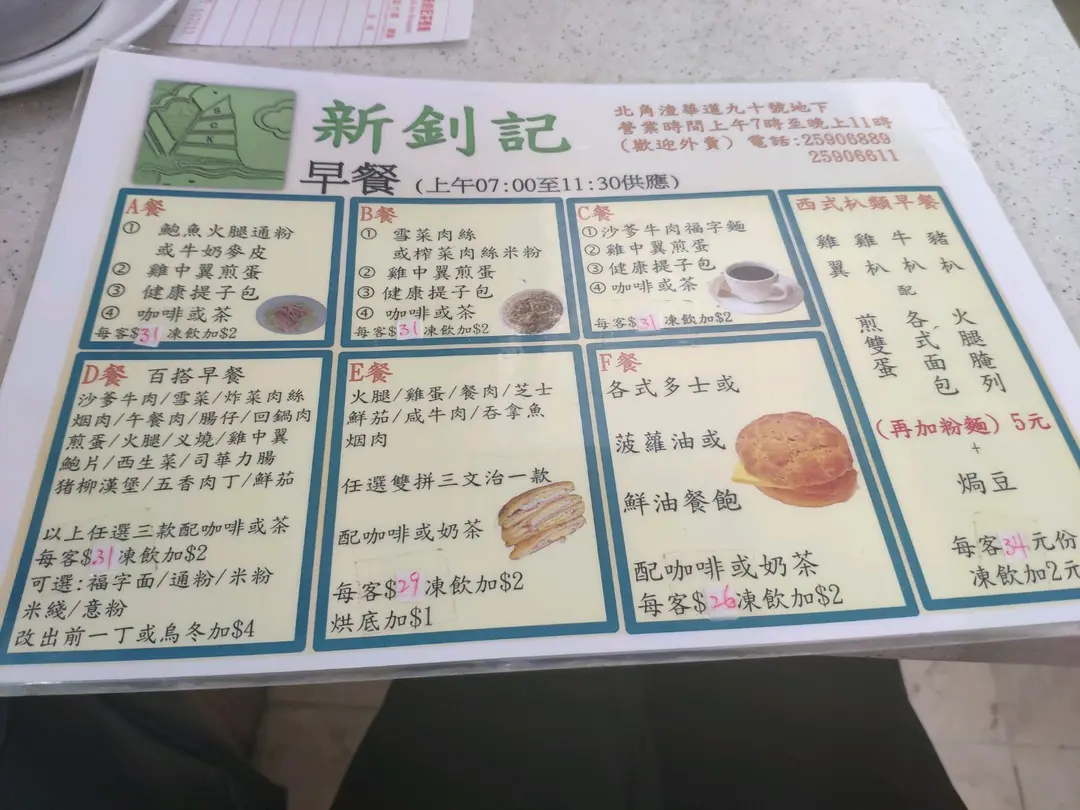 新釗記
北角渣華道九十號地下
營業時間上午7時至晚上11時
(歡迎外賣) 電話:25906889
25906611
早餐 (上午07:00至11:30供應)
A餐
① 鮑魚火腿通粉
或牛奶麥皮
② 雞中翼煎蛋
③ 健康提子包
④ 咖啡或茶
每客$31凍飲加$2
B餐
① 雪菜肉絲
或榨菜肉絲米粉
② 雞中翼煎蛋
③ 健康提子包
④ 咖啡或茶
每客$31凍飲加$2
C餐
①沙爹牛肉福字麵
②雞中翼煎蛋
③健康提子包
④咖啡或茶
每客$31 凍飲加$2
西式扒類早餐
雞翼 雞扒 牛扒 豬扒
配
煎雙蛋 各式面包 火腿腌列
(再加粉麵) 5元
+
焗豆
每客34元份
凍飲加2元
D餐 百搭早餐
沙爹牛肉/雪菜/炸菜肉絲
烟肉/午餐肉/腸仔/回鍋肉
煎蛋/火腿/义燒/雞中翼
鮑片/西生菜/司華力腸
猪柳漢堡/五香肉丁/鮮茄
以上任選三款配咖啡或茶
每客$31凍飲加$2
可選:福字面/通粉/米粉
米綫/意粉
改出前一丁或烏冬加$4
E餐
火腿/雞蛋/餐肉/芝士
鮮茄/咸牛肉/吞拿魚
烟肉
任選雙拼三文治一款
配咖啡或奶茶
每客$29凍飲加$2
烘底加$1
F餐
各式多士或
菠蘿油或
鮮油餐飽
配咖啡或奶茶
每客$26凍飲加$2